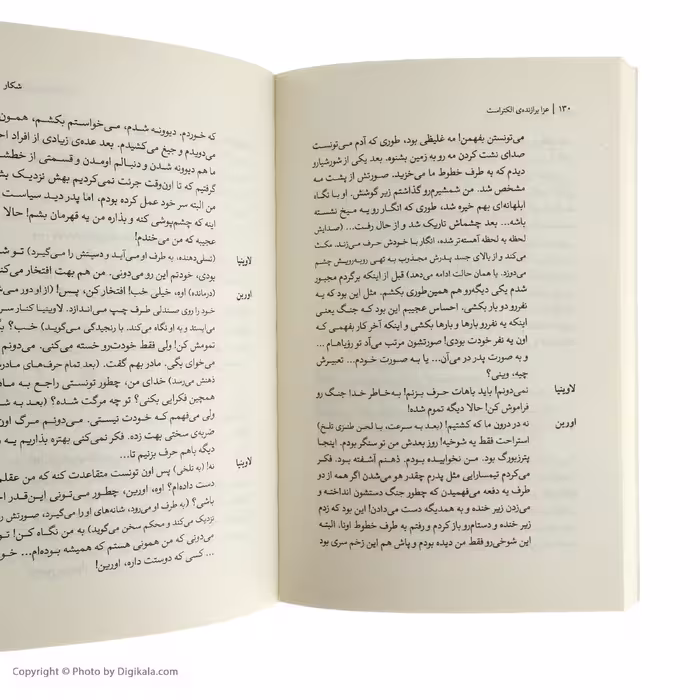 ۱۳۰ | عزا برازنده‌ی الکتراست
می‌تونستن بفهمن! مه غلیظی بود، طوری که آدم می‌تونست
صدای نشت کردن مه رو به زمین بشنوه. بعد یکی از شورشیارو
دیدم که به طرف خطوط ما می‌خزید. صورتش از پشت مه
مشخص شد. من شمشیرم‌رو گذاشتم زیر گوشش. او با نگاه
ابلهانه‌ای بهم خیره شد، طوری که انگار رو یه میخ نشسته
باشه... بعد چشماش تاریک شد و از حال رفت... (صدایش
لحظه به لحظه آهسته‌تر شده، انگار با خودش حرف می‌زند. مکث
می‌کند و از بالای جسد پدرش مجذوب به تهی روبه‌رویش چشم
می‌دوزد. با همان حالت ادامه می‌دهد) قبل از اینکه برگردم مجبور
شدم یکی دیگه‌رو هم همین‌طوری بکشم. مثل این بود که یه
نفررو دو بار بکشی. احساس عجیبم این بود که جنگ یعنی
اینکه یه نفررو بارها و بارها بکشی و آخر کار بفهمی که
اون یه نفر خودت بودی! صورتشون مرتب می‌آد تو رؤیاهام...
و به صورت پدر در می‌آن... یا به صورت خودم... تعبیرش
چیه، وینی؟
لاوینیا نمی‌دونم! باید باهات حرف بزنم! به‌خاطر خدا جنگ رو
فراموش کن! حالا دیگه تموم شده!
اورین نه در درون ما که کشتیم! (بعد به سرعت، با لحن طنزی تلخ)
استراحت فقط یه شوخیه! روز بعدش من تو سنگر بودم. اینجا
پترزبورگ بود. من نخوابیده بودم. ذهنم آشفته بود. فکر
می‌کردم تیمسارایی مثل پدرم چقدر هو می‌شدن اگر همه از دو
طرف یه دفعه می‌فهمیدن که چطور جنگ دستشون انداخته و
می‌زدن زیر خنده و به همدیگه دست می‌دادن! این بود که زدم
زیر خنده و دستام‌رو باز کردم و رفتم به طرف خطوط اونا. البته
این شوخی‌رو فقط من دیده بودم و پاش هم این زخم سری بود
شکار
که خوردم. دیوونه شدم، می‌خواستم بکشم، همون
می‌دویدم و جیغ می‌کشیدم. بعد عده‌ی زیادی از افراد
ما هم دیوونه شدن و دنبالم اومدن و قسمتی از
گرفتیم که تا اون‌وقت جرئت نمی‌کردیم بهش نزدیک
من البته سر خود عمل کرده بودم، اما پدر دید سیاست
اینه که چشم‌پوشی کنه و بذاره من یه قهرمان بشم! حالا
عجیبه که من می‌خندم!
لاوینیا (تسلی‌دهنده، به طرف او می‌آید و دستش را می‌گیرد) تو
بودی، خودتم این رو می‌دونی. من هم بهت افتخار
اورین (درمانده) اوه، خیلی خب! افتخار کن، پس! (از او دور
خود را روی صندلی طرف چپ می‌اندازد. لاوینیا کنار
می‌ایستد و به او نگاه می‌کند. با رنجیدگی می‌گوید) خب؟
نمومش کن! ولی تو فقط خودت‌رو خسته می‌کنی. می‌دونم
می‌خوای بگی. مادر بهم گفت. (بعد تمام حرف‌های
ذهنش می‌رسد) خدای من، چطور تونستی راجع به
همچین فکرایی بکنی؟ تو چه مرگت شده؟ (بعد به
ولی می‌فهمم که خودت نیستی. می‌دونم مرگ
ضربه‌ی سختی بهت زده. فکر نمی‌کنی بهتره بذاریم یه
دیگه باهم حرف بزنیم تا...
لاوینیا نه! (به تلخی) پس اون تونست متقاعدت کنه که من
دست داده‌ام؟ اوه، اورین، چطور می‌تونی این‌قدر
باشی؟ (به طرف او می‌رود، شانه‌های او را می‌گیرد، صورتش
نزدیک می‌کند و محکم سخن می‌گوید) به من نگاه کن!
می‌دونی که من همونی هستم که همیشه بوده‌ام...
... کسی که دوستت داره، اورین!
Copyright © Photo by Digikala.com